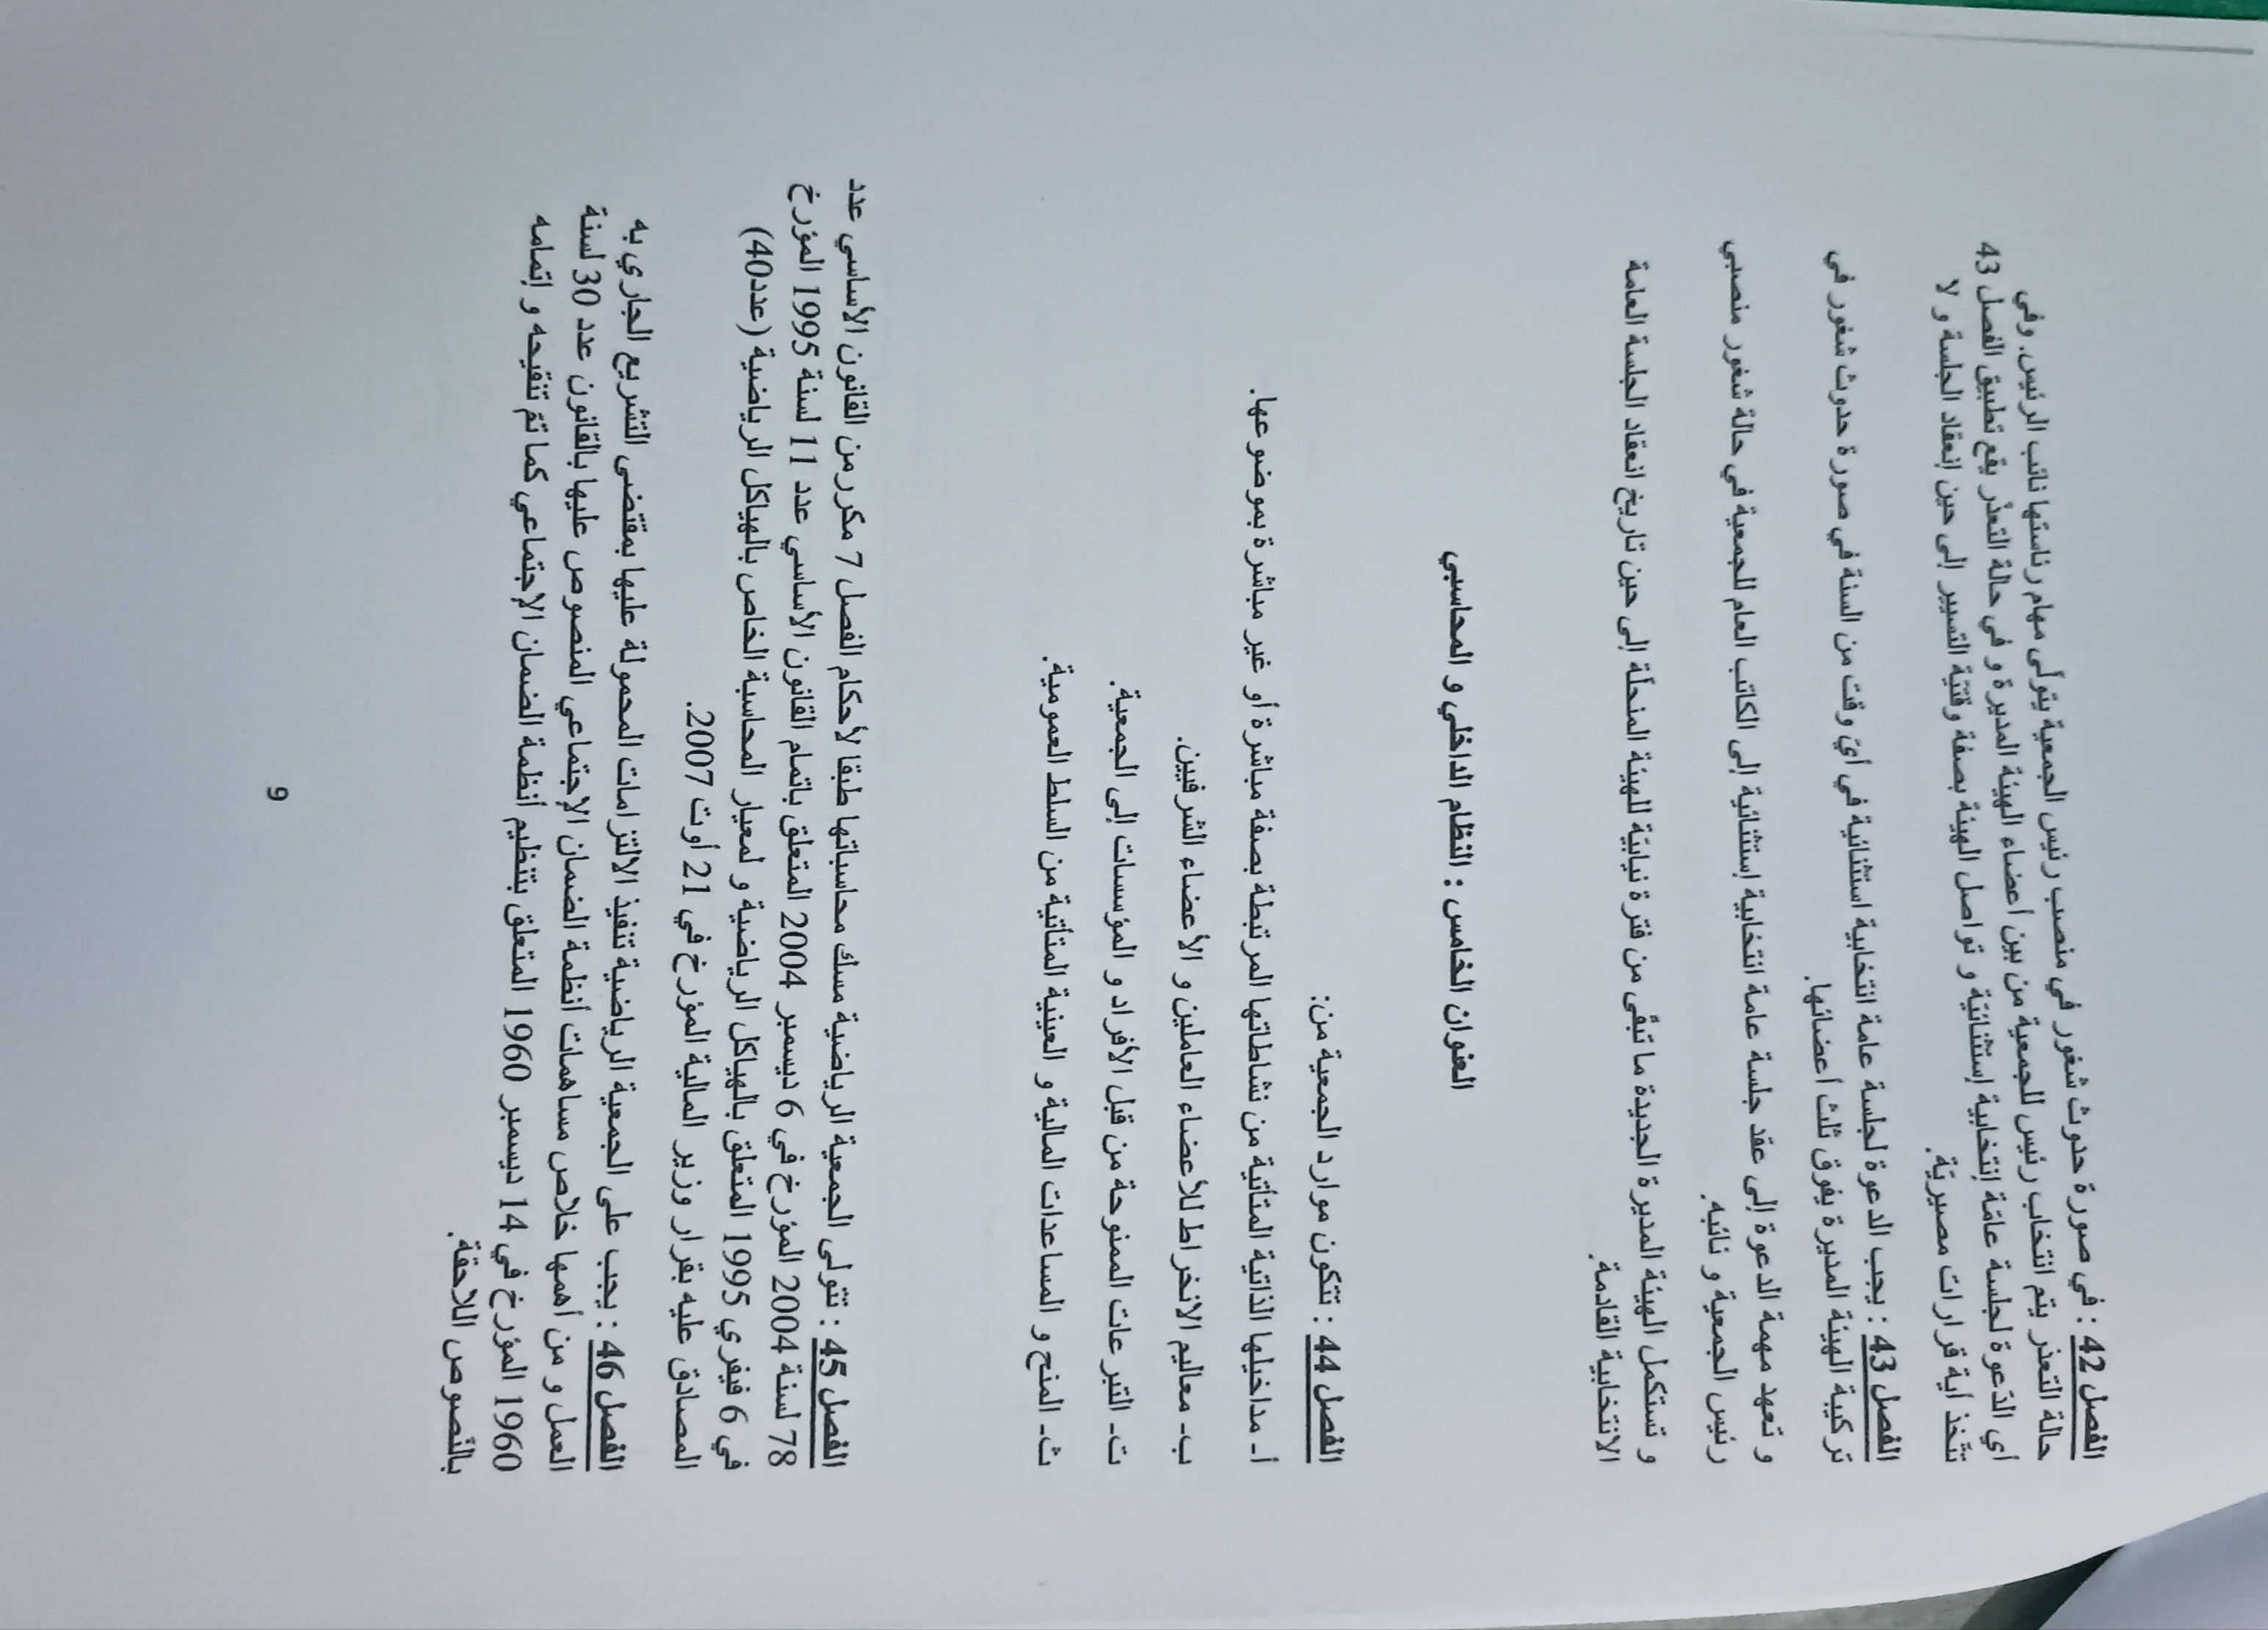 الفصل 42 : في صورة حدوث شغور في منصب رئيس الجمعية يتولّى مهام رئاستها نائب الرئيس. وفي
حالة التعذر يتم انتخاب رئيس للجمعية من بين أعضاء الهيئة المديرة و في حالة التعذّر يقع تطبيق الفصل 43
أي الدّعوة لجلسة عامّة إنتخابية إستثنائيّة و تواصل الهيئة بصفة وقتيّة التسيير إلى حين إنعقاد الجلسة و لا
تتّخذ أية قرارات مصيريّة.
الفصل 43 : يجب الدعوة لجلسة عامة انتخابية استثنائية في أيّ وقت من السنة في صورة حدوث شغور في
تركيبة الهيئة المديرة يفوق ثلث أعضائها.
و تعهد مهمة الدعوة إلى عقد جلسة عامة انتخابية إستثنائية إلى الكاتب العام للجمعية في حالة شغور منصبي
رئيس الجمعية و نائبه.
و تستكمل الهيئة المديرة الجديدة ما تبقّى من فترة نيابيّة للهيئة المنحلّة إلى حين تاريخ انعقاد الجلسة العامة
الانتخابية القادمة.
العنوان الخامس : النظام الداخلي و المحاسبي
الفصل 44 : تتكون موارد الجمعية من:
أ- مداخيلها الذاتية المتأتية من نشاطاتها المرتبطة بصفة مباشرة أو غير مباشرة بموضوعها.
ب- معاليم الانخراط للأعضاء العاملين و الأعضاء الشرفيين.
ت- التبرعات الممنوحة من قبل الأفراد و المؤسسات إلى الجمعية.
ث- المنح و المساعدات المالية و العينية المتأتية من السلط العمومية.
الفصل 45 : تتولى الجمعية الرياضية مسك محاسباتها طبقا لأحكام الفصل 7 مكرر من القانون الأساسي عدد
78 لسنة 2004 المؤرخ في 6 ديسمبر 2004 المتعلق باتمام القانون الأساسي عدد 11 لسنة 1995 المؤرخ
في 6 فيفري 1995 المتعلق بالهياكل الرياضية و لمعيار المحاسبة الخاص بالهياكل الرياضية (عدد40)
المصادق عليه بقرار وزير المالية المؤرخ في 21 أوت 2007.
الفصل 46 : يجب على الجمعية الرياضية تنفيذ الالتزامات المحمولة عليها بمقتضى التشريع الجاري به
العمل و من أهمها خلاص مساهمات أنظمة الضمان الإجتماعي المنصوص عليها بالقانون عدد 30 لسنة
1960 المؤرخ في 14 ديسمبر 1960 المتعلق بتنظيم أنظمة الضمان الإجتماعي كما تمّ تنقيحه و إتمامه
بالنّصوص اللاحقة.
9